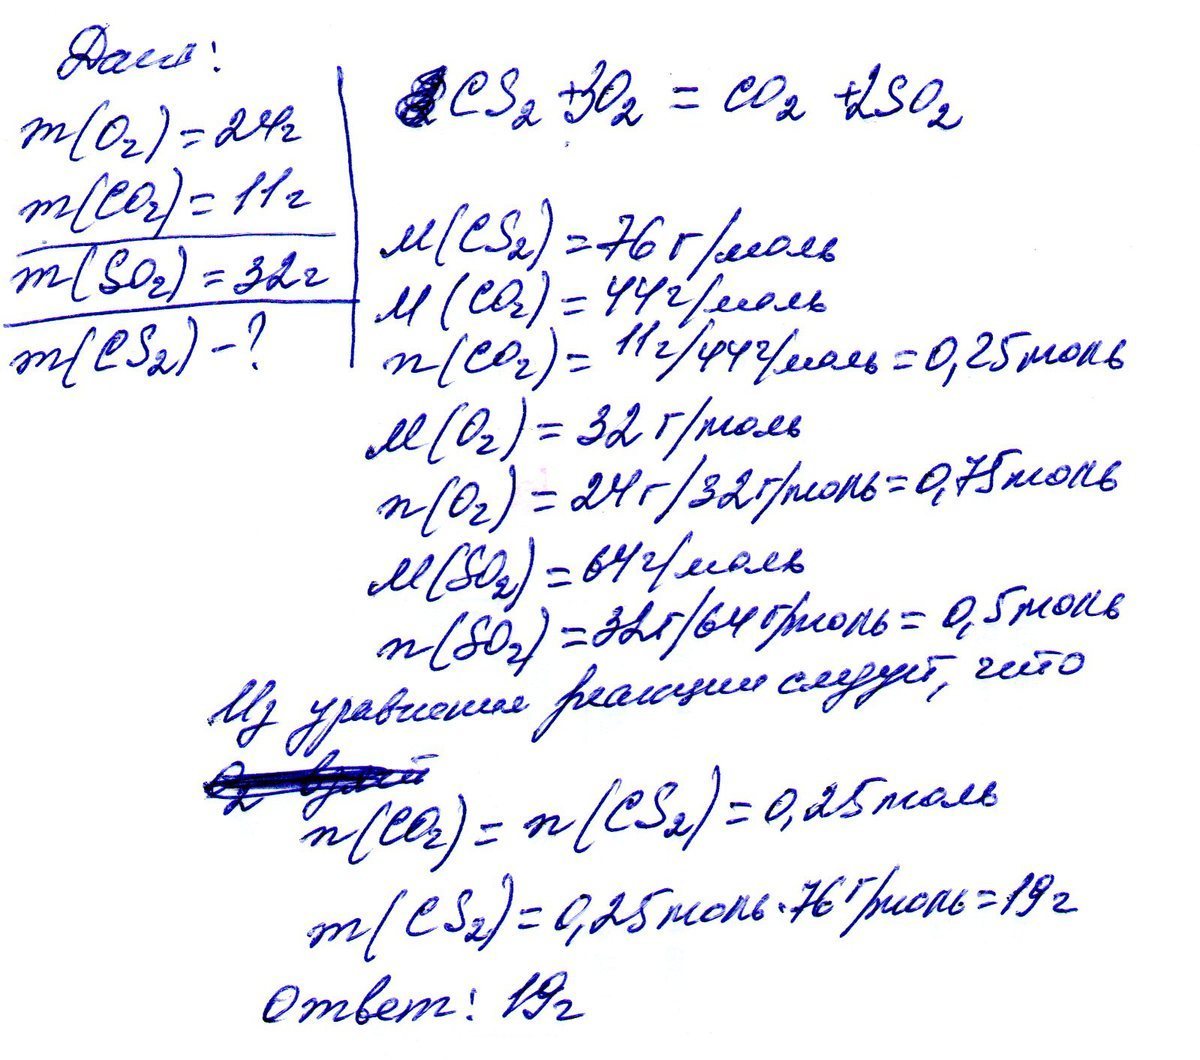 Дано:
m(O₂) = 24г
m(CO₂) = 11г
m(SO₂) = 32г
m(CS₂) - ?
CS₂ + 3O₂ = CO₂ + 2SO₂
M(CS₂) = 76 г/моль
M(CO₂) = 44г/моль
n(CO₂) = 11г/44г/моль = 0,25моль
M(O₂) = 32 г/моль
n(O₂) = 24г/32г/моль = 0,75моль
M(SO₂) = 64г/моль
n(SO₂) = 32г/64г/моль = 0,5моль
Из уравнения реакции следует, что
n(CO₂) = n(CS₂) = 0,25моль
m(CS₂) = 0,25моль·76г/моль = 19г
Ответ: 19г